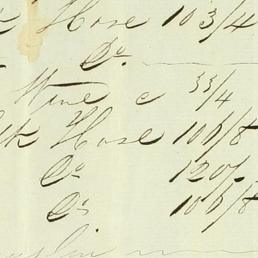 Hose 103/4
Do
Wine c 33/4
Hose 106/8
Do 120/
Do 106/8